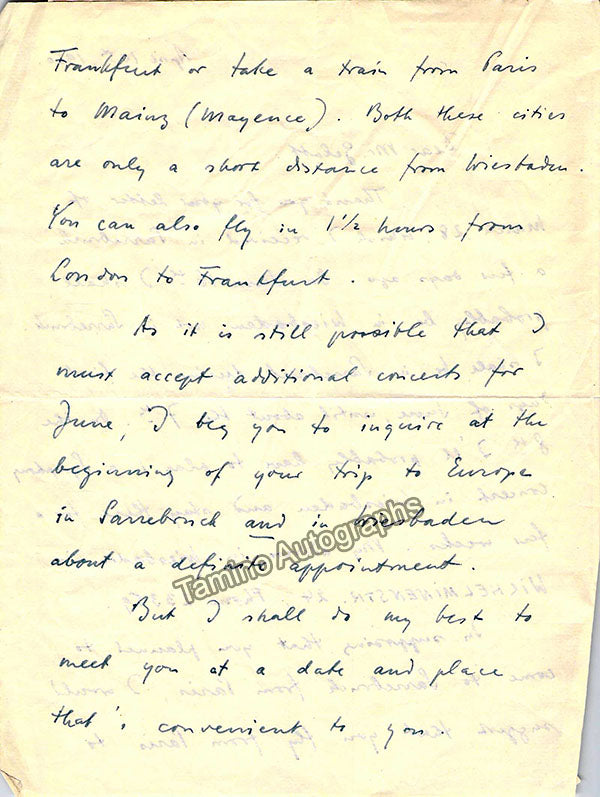 Frankfurt or take a train from Paris
to Mainz (Mayence). Both these cities
are only a short distance from Wiesbaden.
You can also fly in 1½ hours from
London to Frankfurt.
As it is still possible that I
must accept additional concerts for
June, I beg you to inquire at the
beginning of your trip to Europe
in Sarrebruck and in Wiesbaden
about a definite appointment.
Tamino Autographs
But I shall do my best to
meet you at a date and place
that's convenient to you.